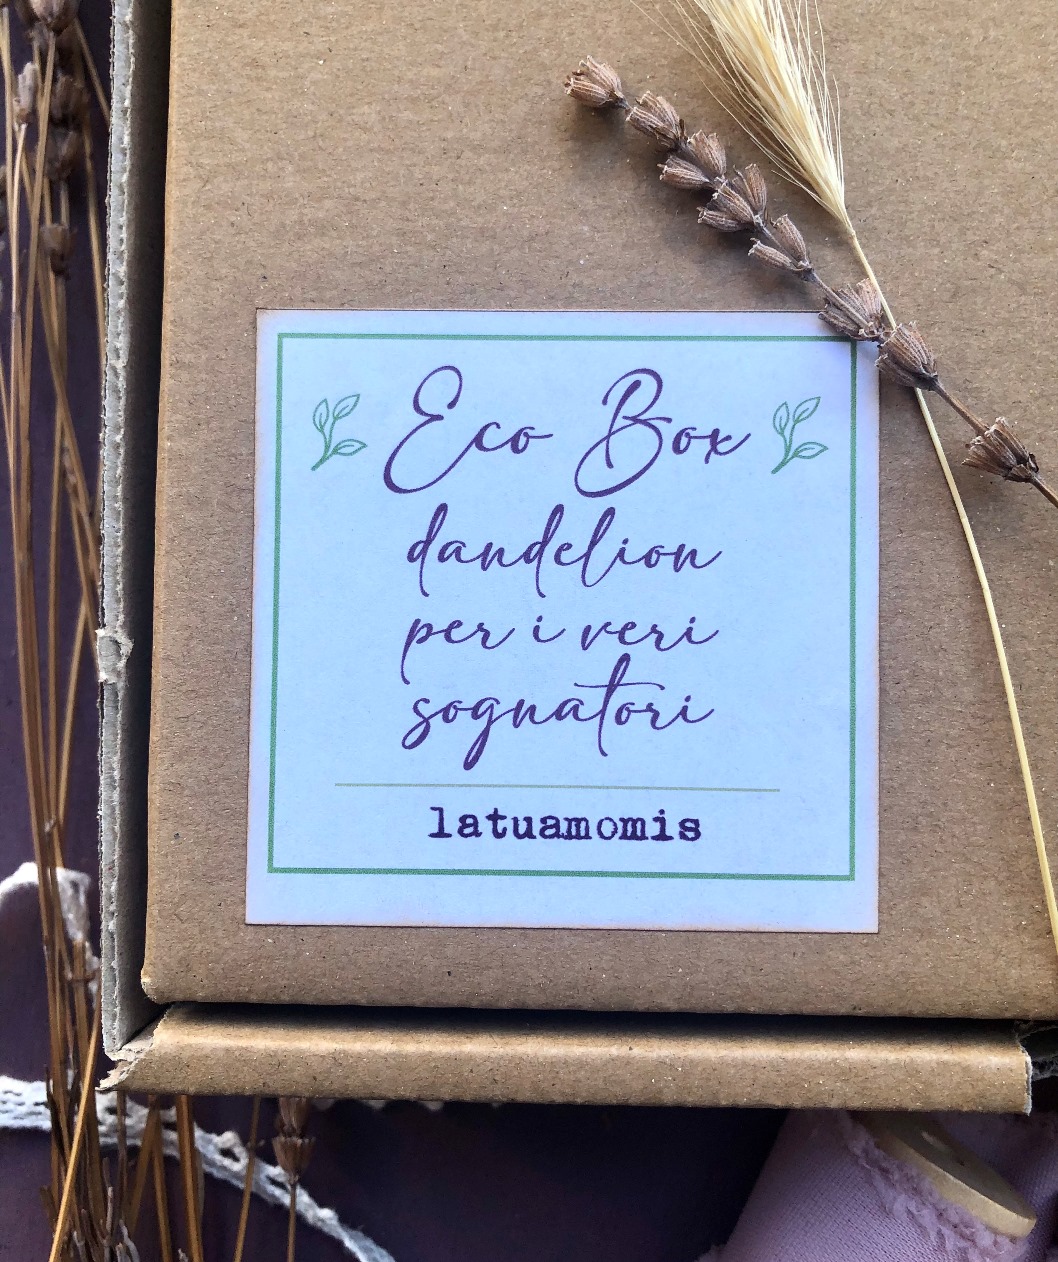 Eco Box
dandelion
per i veri
sognatori
latuamomis